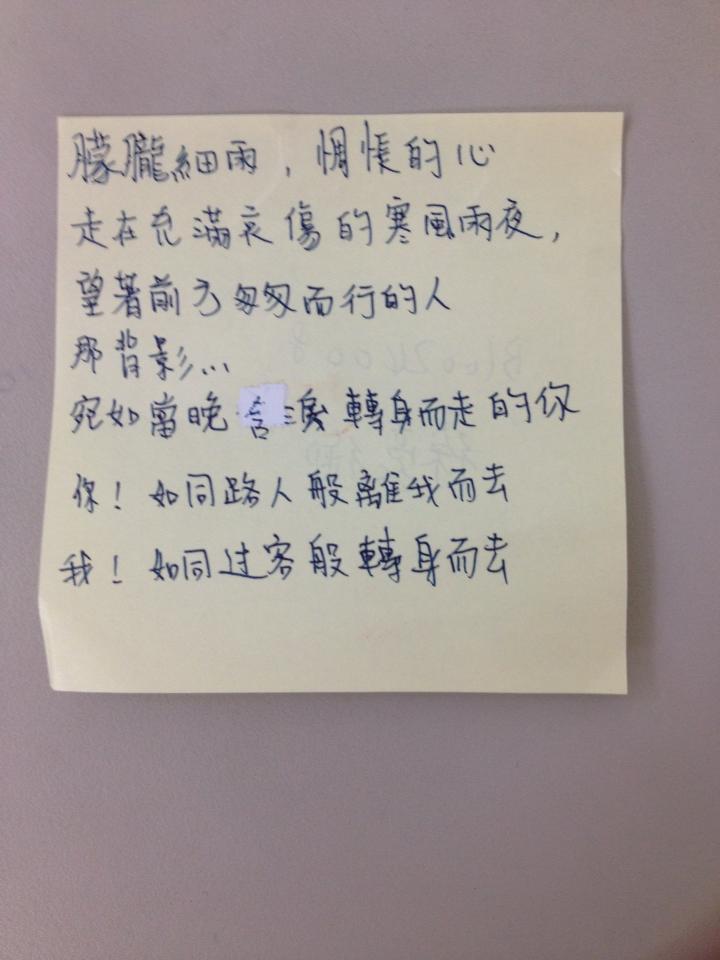 朦朧細雨，惆悵的心
走在充滿哀傷的寒風雨夜，
望著前方匆匆而行的人
那背影...
宛如當晚含淚轉身而走的你
你！如同路人般離我而去
我！如同过客般轉身而去